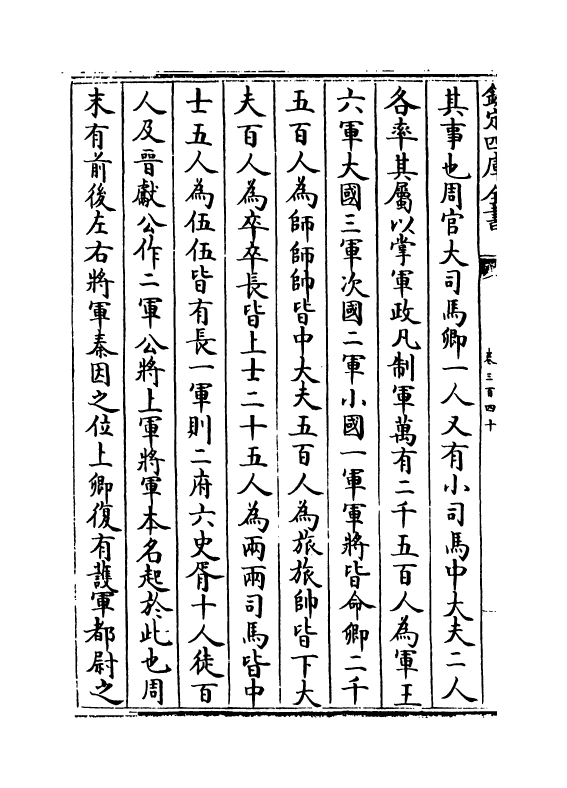 欽定四庫全書
卷三百四十
其事也周官大司馬卿一人又有小司馬中大夫二人
各率其屬以掌軍政凡制軍萬有二千五百人為軍王
六軍大國三軍次國二軍小國一軍軍將皆命卿二千
五百人為師師帥皆中大夫五百人為旅旅帥皆下大
夫百人為卒卒長皆上士二十五人為兩兩司馬皆中
士五人為伍伍皆有長一軍則二府六史胥十人徒百
人及晉獻公作二軍公將上軍將軍本名起於此也周
末有前後左右將軍秦因之位上卿復有護軍都尉之